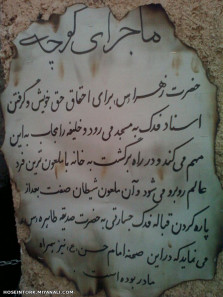 ماجرای کوچه
حضرت زهرا س برای احقاق حق خویش و گرفتن
اسناد فدک به مسجد می رود و خلیفه را مجاب به این
مهم می کند و در راه برگشت به خانه با ملعون ترین فرد
عالم روبرو می شود و آن ملعون شیطان صفت بعد از
پاره کردن قباله فدک جسارتی به حضرت صدیقه طاهره س
می نماید که در این صحنه امام حسن ع نیز همراه
مادر بوده است
HOSEINTORK.MIYANALI.COM